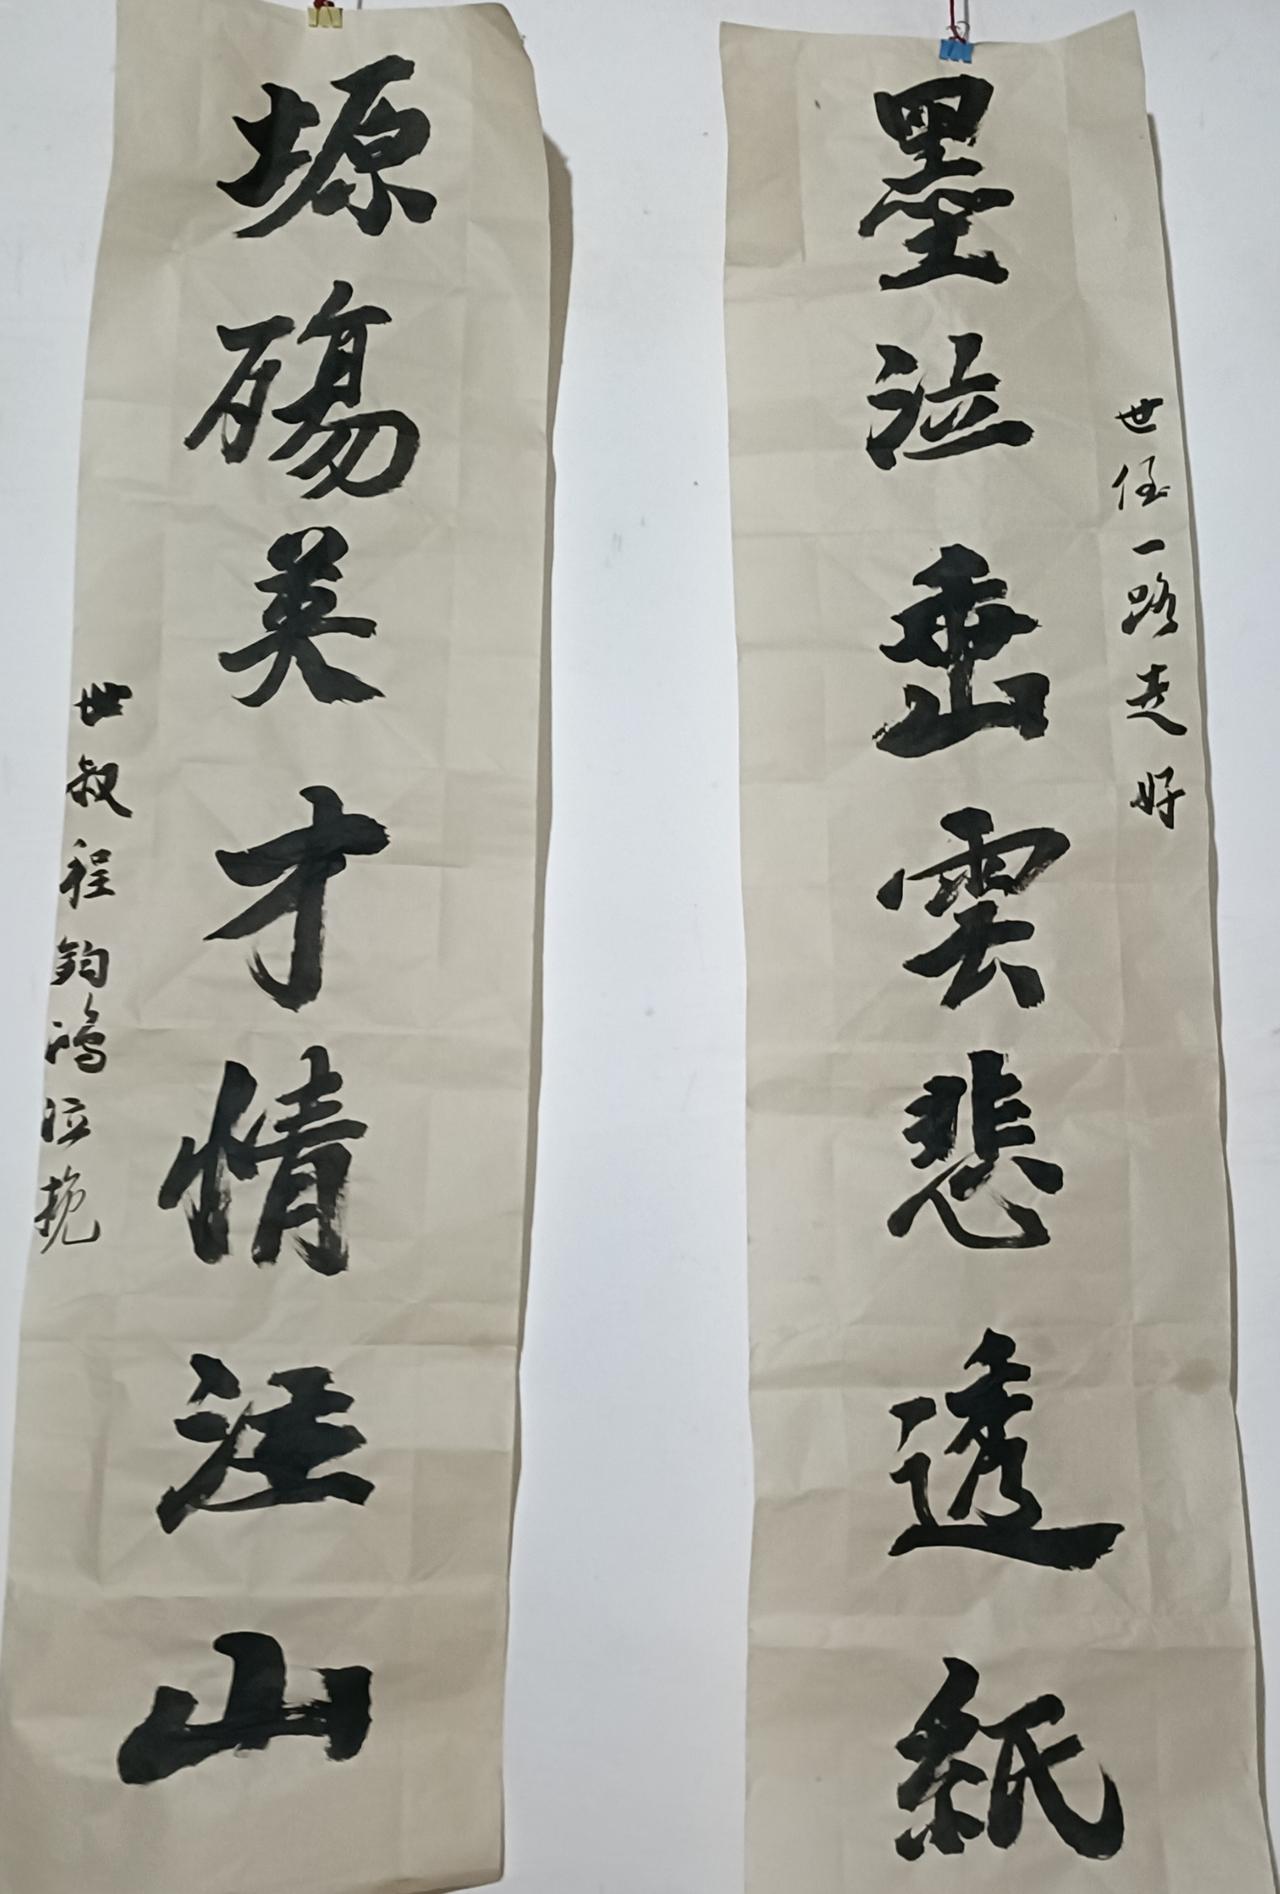 世侄一路走好
墨泣垂雲悲透紙
塬殤英才情注山
世叔程鈞鴻泣挽